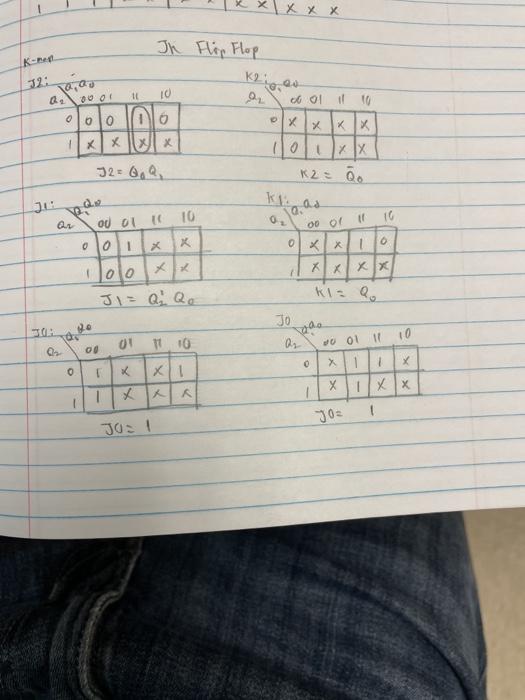 1 1 1 x x x x x x
Jk Flip Flop
K-map
J2: Q1Q0
Q2 00 01 11 10
0 0 0 1 0
1 x x x x
J2 = Q0 Q1
K2: Q1Q0
Q2 00 01 11 10
0 x x x x
1 0 1 x x
K2 = Q̄0
J1: Q1Q0
Q2 00 01 11 10
0 0 1 x x
1 0 0 x x
J1 = Q2' Q0
K1: Q1Q0
Q2 00 01 11 10
0 x x 1 0
1 x x x x
K1 = Q0
J0: Q1Q0
Q2 00 01 11 10
0 1 x x 1
1 1 x x x
J0 = 1
J0 Q1Q0
Q2 00 01 11 10
0 x 1 1 x
1 x 1 x x
J0 = 1